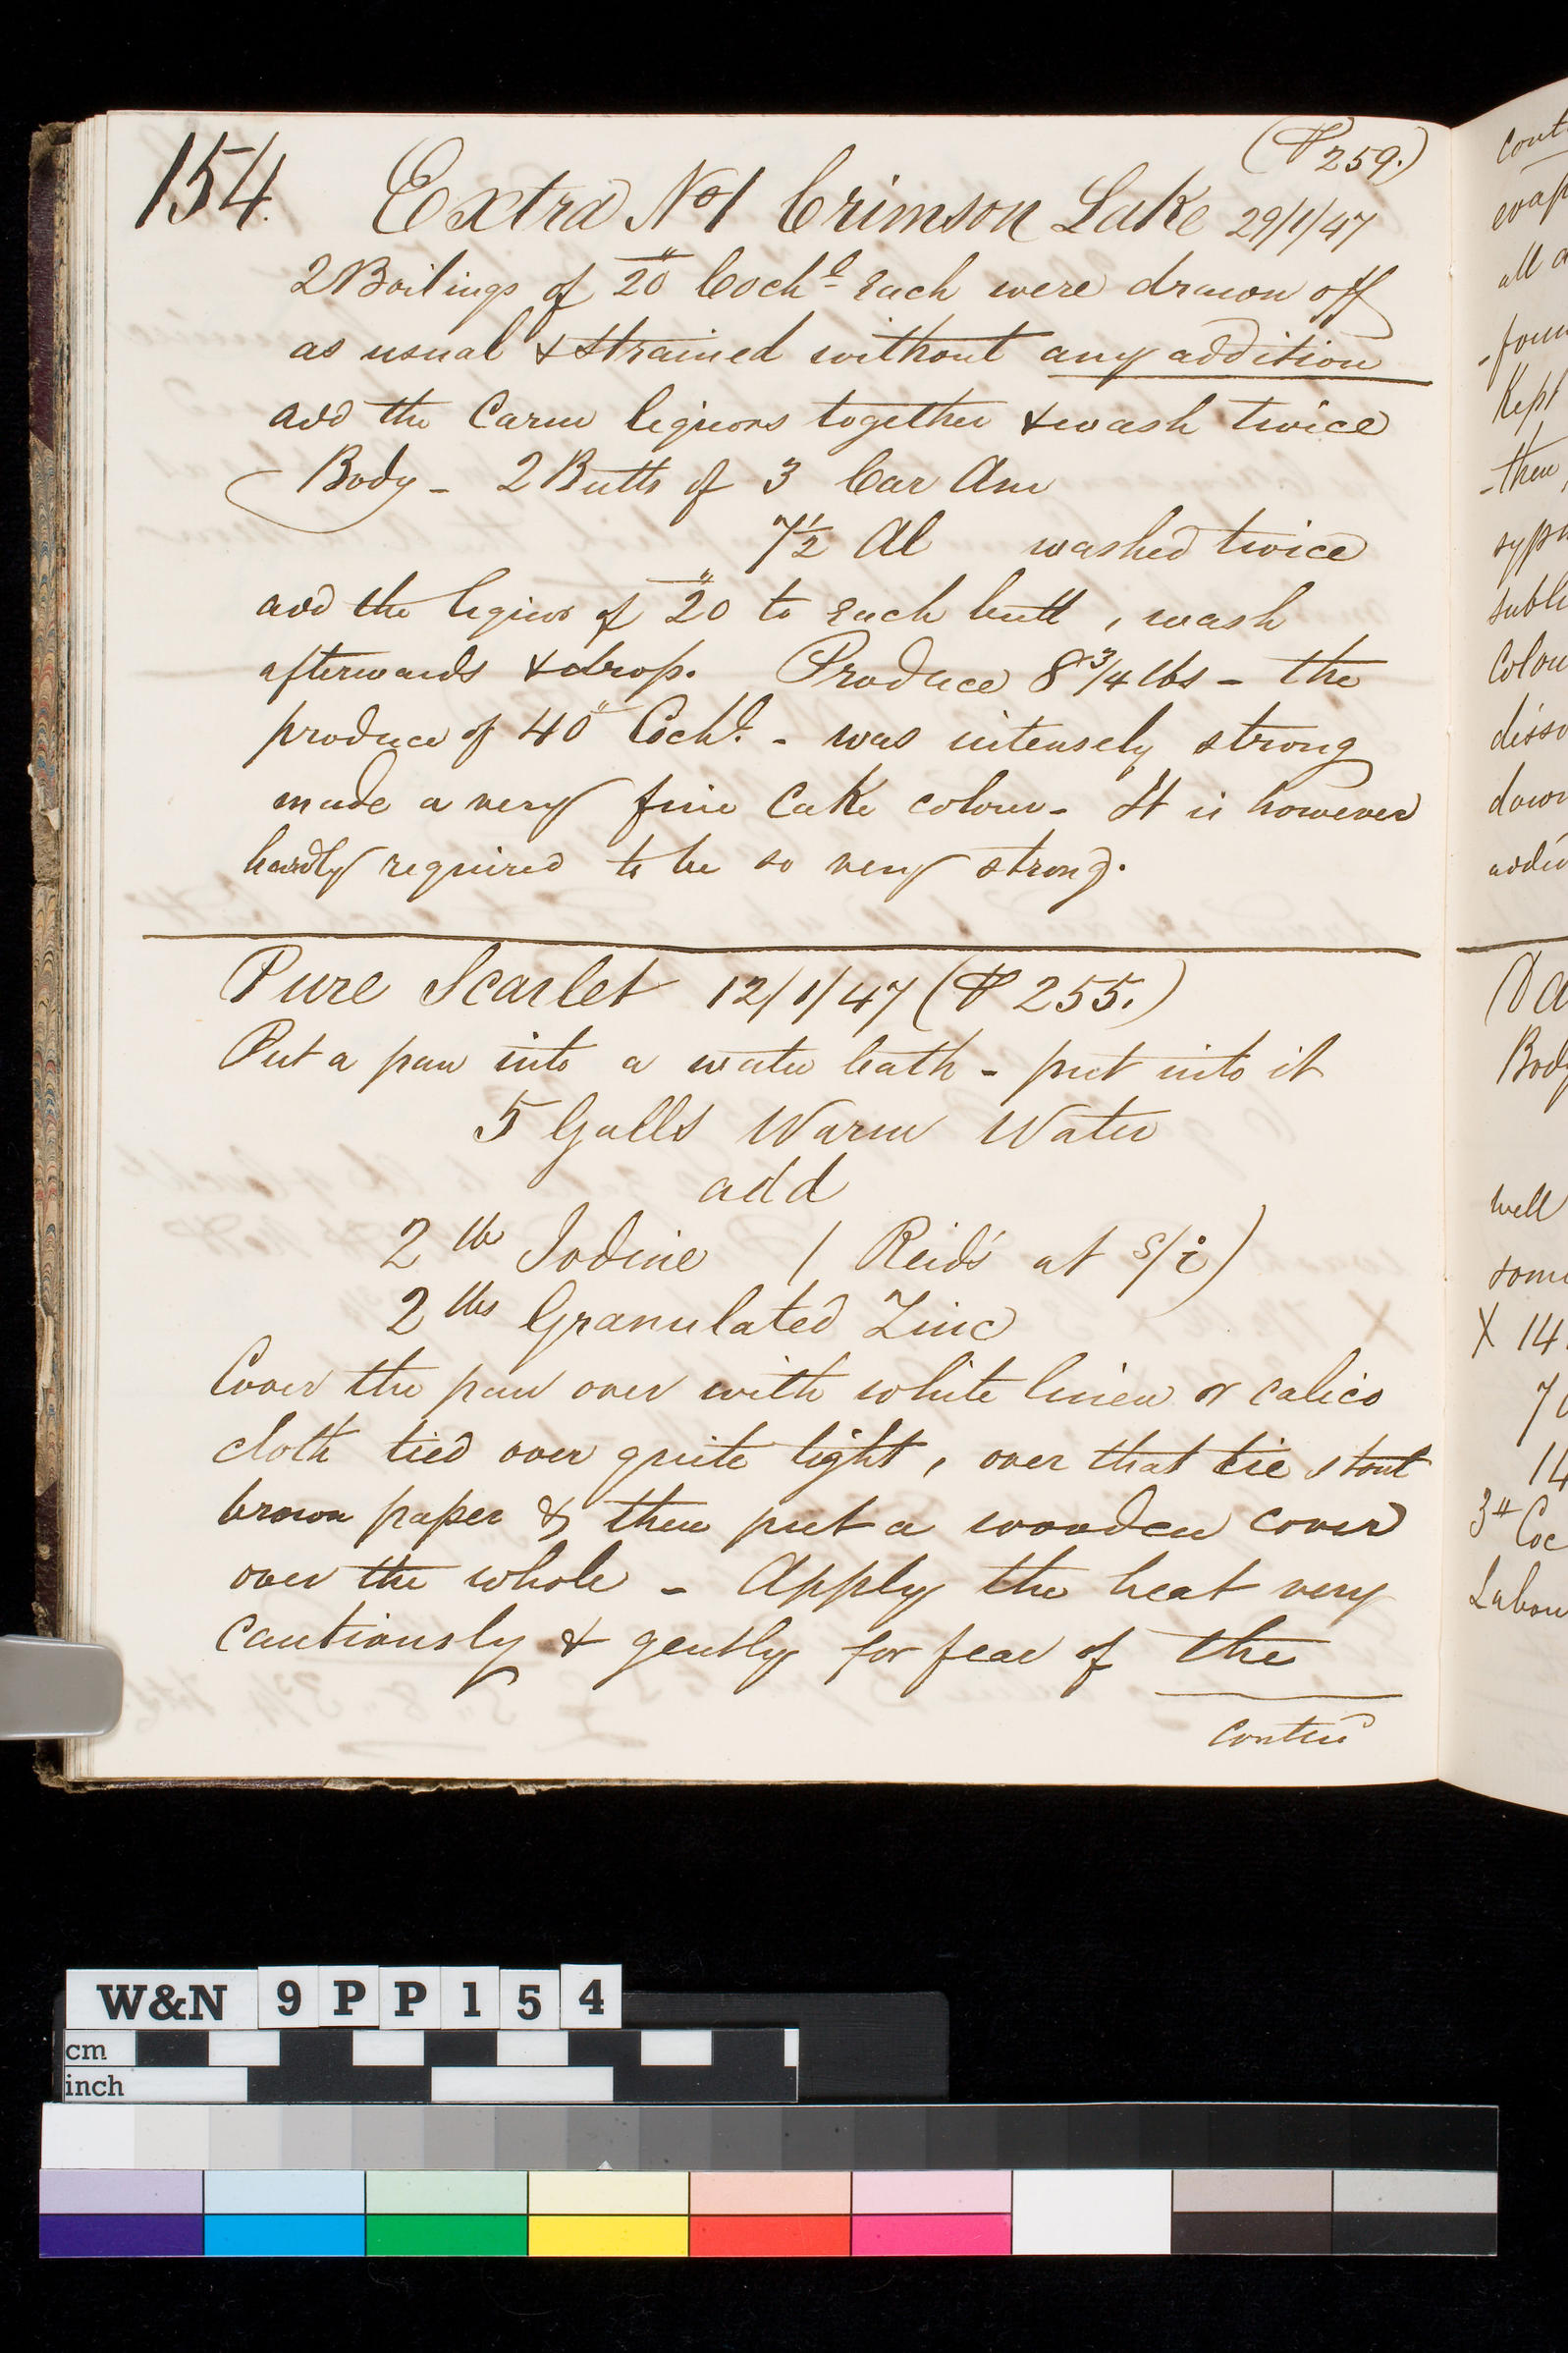 154.
(P 259.)
Extra No1 Crimson Lake 29/1/47
2 Boilings of 20" Cochl each were drawn off
as usual & strained without any addition
add the Carm liquors together & wash twice
Body - 2 Butts of 3 Car Am
7½ Al washed twice
add the liquor of 20" to each butt, wash
afterwards & drop. Produce 8¾ lbs - the
produce of 40" Cochl. - was intensely strong
made a very fine Cake colour - It is however
hardly required to be so very strong.
Pure Scarlet 12/1/47 (P 255.)
Put a pan into a water bath - put into it
5 Galls Warm Water
add
2 lb Iodine ( Reid's at s/i)
2 lbs Granulated Zinc
Cover the pan over with white linen or calico
cloth tied over quite tight, over that tie stout
brown paper & then put a wooden cover
over the whole - Apply the heat very
cautiously & gently for fear of the
contin
cont
evap
all
Kept
then
syph
subl
Colou
disso
down
added
Body
well
some
X 14
7
14
3" Coc
Labou
W&N 9PP154
cm
inch